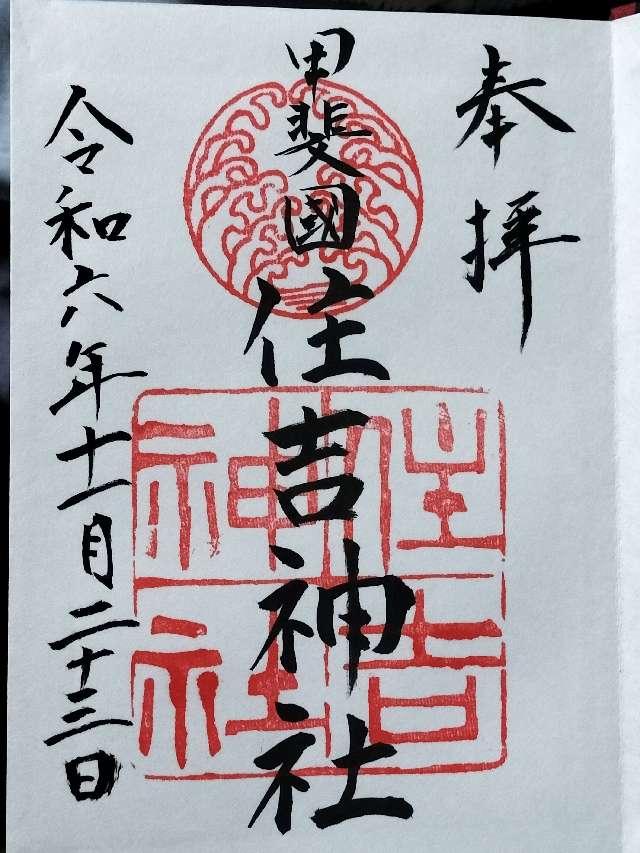 奉拝
甲斐國住吉神社
住吉神社
令和六年十一月二十三日